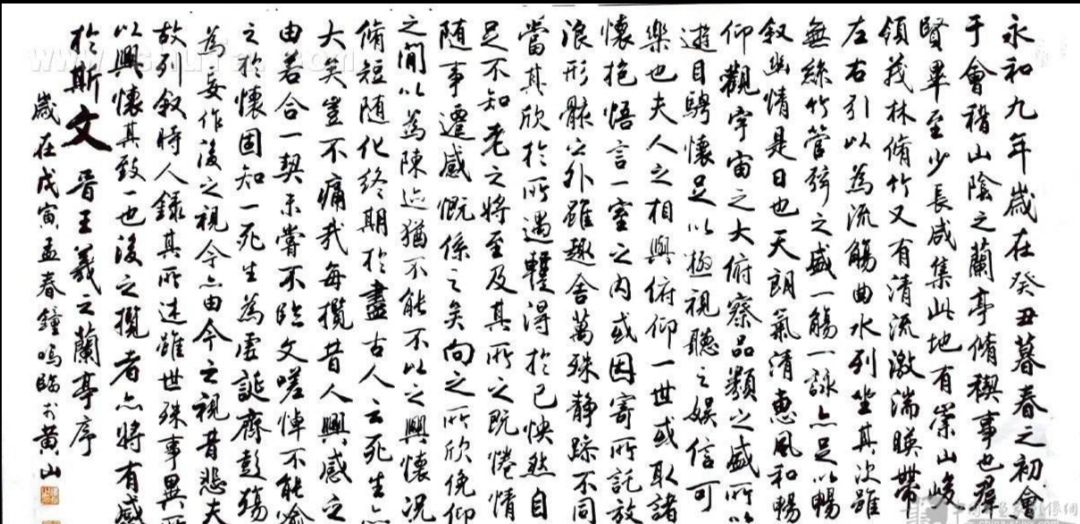 永和九年歲在癸丑暮春之初會
于會稽山陰之蘭亭脩禊事也羣
賢畢至少長咸集此地有崇山峻
領茂林脩竹又有清流激湍暎帶
左右引以為流觴曲水列坐其次雖
無絲竹管弦之盛一觴一詠亦足以暢
叙幽情是日也天朗氣清惠風和暢
仰觀宇宙之大俯察品類之盛所以
遊目騁懷足以極視聽之娛信可
樂也夫人之相與俯仰一世或取諸
懷抱悟言一室之內或因寄所託放
浪形骸之外雖趣舍萬殊靜躁不同
當其欣於所遇蹔得於己怏然自
足不知老之將至及其所之既惓情
随事遷感慨係之矣向之所欣俛仰
之閒以為陳迹猶不能不以之興懷況
脩短随化終期於盡古人云死生亦
大矣豈不痛哉每攬昔人興感之
由若合一契未嘗不臨文嗟悼不能喻
之於懷固知一死生為虛誕齊彭殤
為妄作後之視今亦由今之視昔悲夫
故列叙時人錄其所述雖世殊事異所
以興懷其致一也後之攬者亦將有感
於斯文晉王羲之蘭亭序
歲在戊寅孟春鐘鳴臨於黃山